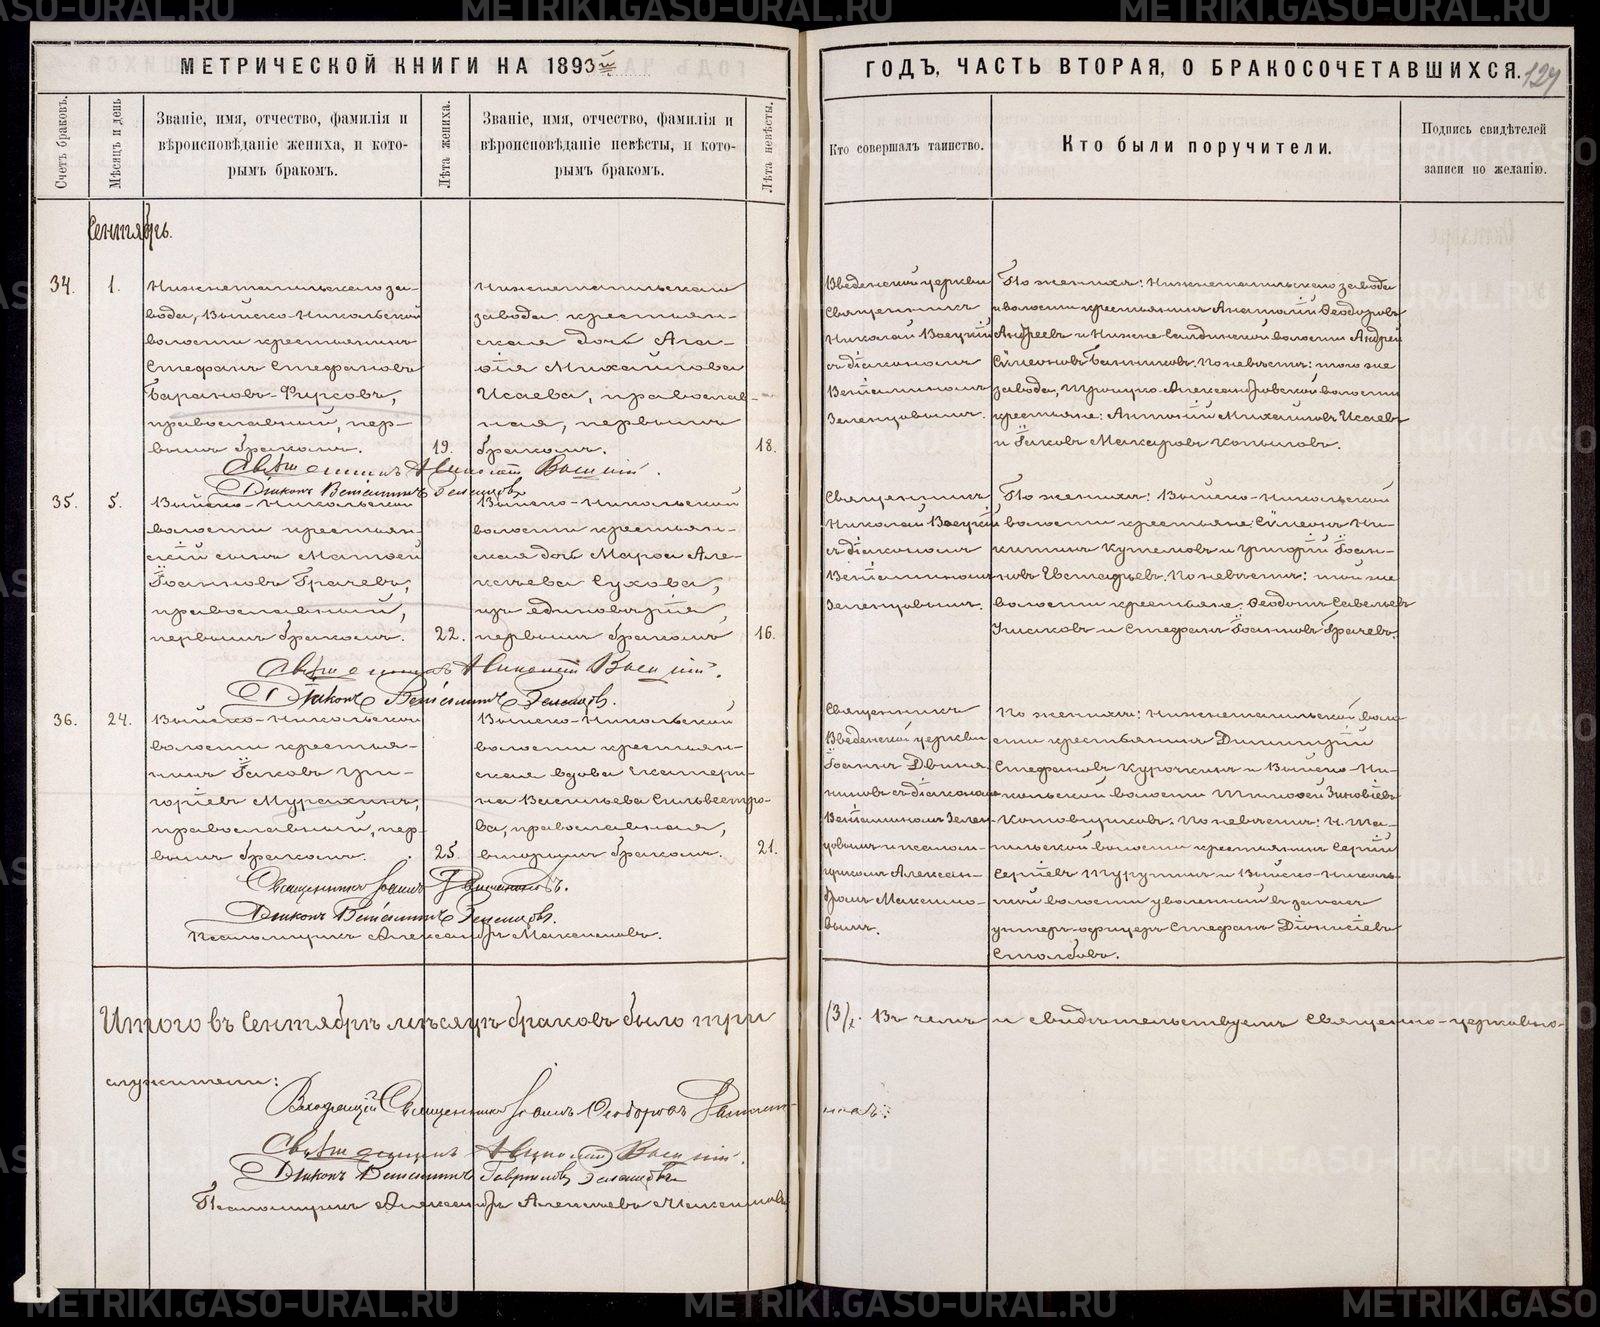 МЕТРИЧЕСКОЙ КНИГИ НА 1893 й
ГОДЪ, ЧАСТЬ ВТОРАЯ, О БРАКОСОЧЕТАВШИХСЯ.
127
Счетъ браковъ.
Мѣсяцъ и день
Званіе, имя, отчество, фамилія и
вѣроисповѣданіе жениха, и кото-
рымъ бракомъ.
Лѣта жениха.
Званіе, имя, отчество, фамилія и
вѣроисповѣданіе невѣсты, и кото-
рымъ бракомъ.
Лѣта невѣсты.
Кто совершалъ таинство.
Кто были поручители.
Подпись свидѣтелей
записи по желанію.
Сентябрь.
34.
1.
Нижнетагильскаго за-
вода, Выйско-Никольской
волости крестьянинъ
Стефанъ Стефановъ
Барановъ-Фирсовъ,
православный, пер-
вымъ бракомъ.
19.
Нижнетагильскаго
завода крестьян-
ская дочь Ага-
ѳія Михайлова
Исаева, православ-
ная, первымъ
бракомъ.
18.
Введенской церкви
Священникъ
Николай
съ діакономъ
Веніаминомъ
Зеленцовымъ.
По женихѣ: Нижнетагильскаго завода
и волости крестьянинъ Анатолій Ѳеодоровъ
Андреевъ и Нижне-Салдинской волости Андрей
Сѵмеоновъ Банниковъ. По невѣстѣ: того же
завода, Троицко-Александровской волости
крестьяне: Антоній Михайловъ Исаевъ
и Іаковъ Макаровъ Копыловъ.
Священникъ Николай
Діаконъ Веніаминъ Зеленцовъ
35.
5.
Выйско-Никольской
волости крестьян-
скій сынъ Матѳей
Іоанновъ Грачевъ,
православный,
первымъ бракомъ.
22.
Выйско-Никольской
волости крестьян-
ская дочь Марѳа Але-
ксѣева Сухова,
изъ единовѣрія,
первымъ бракомъ,
16.
Священникъ
Николай
съ діакономъ
Веніаминомъ
Зеленцовымъ.
По женихѣ: Выйско-Никольской
волости крестьяне: Сѵмеонъ Ни-
китинъ Кутемовъ и Григорій Іоан-
новъ Евстафьевъ. По невѣстѣ: той же
волости крестьяне: Ѳеодотъ Савельевъ
Ушаковъ и Стефанъ Іоанновъ Грачевъ.
Священникъ Николай
Діаконъ Веніаминъ Зеленцовъ.
36.
24.
Выйско-Никольской
волости крестья-
нинъ Іаковъ Гри-
горіевъ Мурзихинъ,
православный, пер-
вымъ бракомъ.
25.
Выйско-Никольской
волости крестьян-
ская вдова Екатери-
на Васильева Сильвестро-
ва, православная,
вторымъ бракомъ.
21.
Священникъ
Введенской церкви
Іоаннъ
съ діакономъ
Веніаминомъ Зелен-
цовымъ и псалом-
щикомъ Алексан-
дромъ Максимо-
вымъ.
По женихѣ: Нижнетагильской воло-
сти крестьянинъ Димитрій
Стефановъ Курочкинъ и Выйско-Ни-
кольской волости Тимоѳей Зиновіевъ
Котовщиковъ. По невѣстѣ: Н. Та-
гильской волости крестьянинъ Сергій
Сергіевъ Турутинъ и Выйско-Николь-
ской волости уволенный въ запасъ
унтеръ-офицеръ Стефанъ Діонисіевъ
Столбовъ.
Священникъ Іоаннъ
Діаконъ Веніаминъ Зеленцовъ.
Псаломщикъ Александръ Максимовъ.
Итого въ Сентябрѣ мѣсяцѣ браковъ было три
(3). Въ чемъ и свидѣтельствуемъ Священно-церковно-
служители:
Священникъ Іоаннъ Ѳеодоровъ
Священникъ Николай
Діаконъ Веніаминъ Гавриловъ Зеленцовъ
Псаломщикъ Александръ Алексѣевъ Максимовъ
METRIKI.GASO-URAL.RU